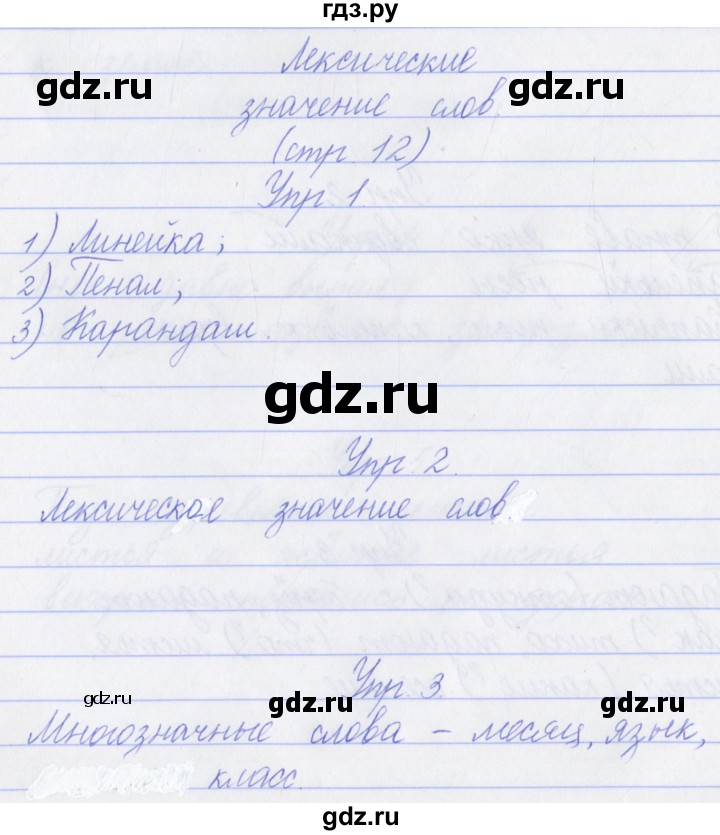 гдз.ру
Лексические
gdz.ru gdz.ru
значение слов.
(стр. 12)
Упр. 1
1) Линейка;
2) Пенал;
3) Карандаш.
gdz.ru
Упр. 2.
Лексическое значение слов.
Упр. 3.
gdz.ru gdz.ru gdz.ru
Многозначные слова – месяц, язык,
класс.
gdz.ru